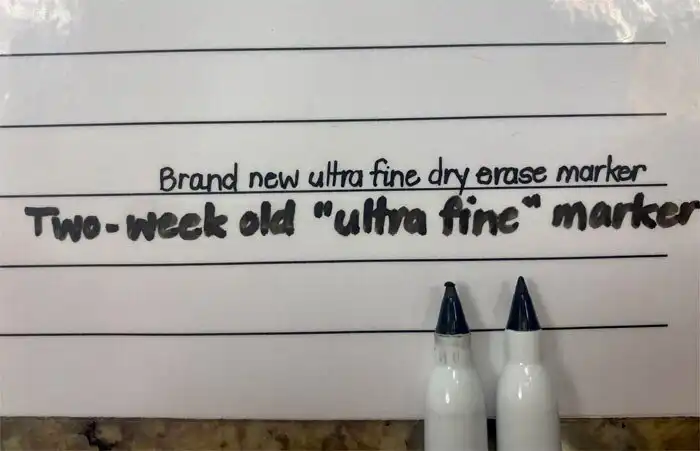 Brand new ultra fine dry erase marker
Two-week old "ultra fine" marker